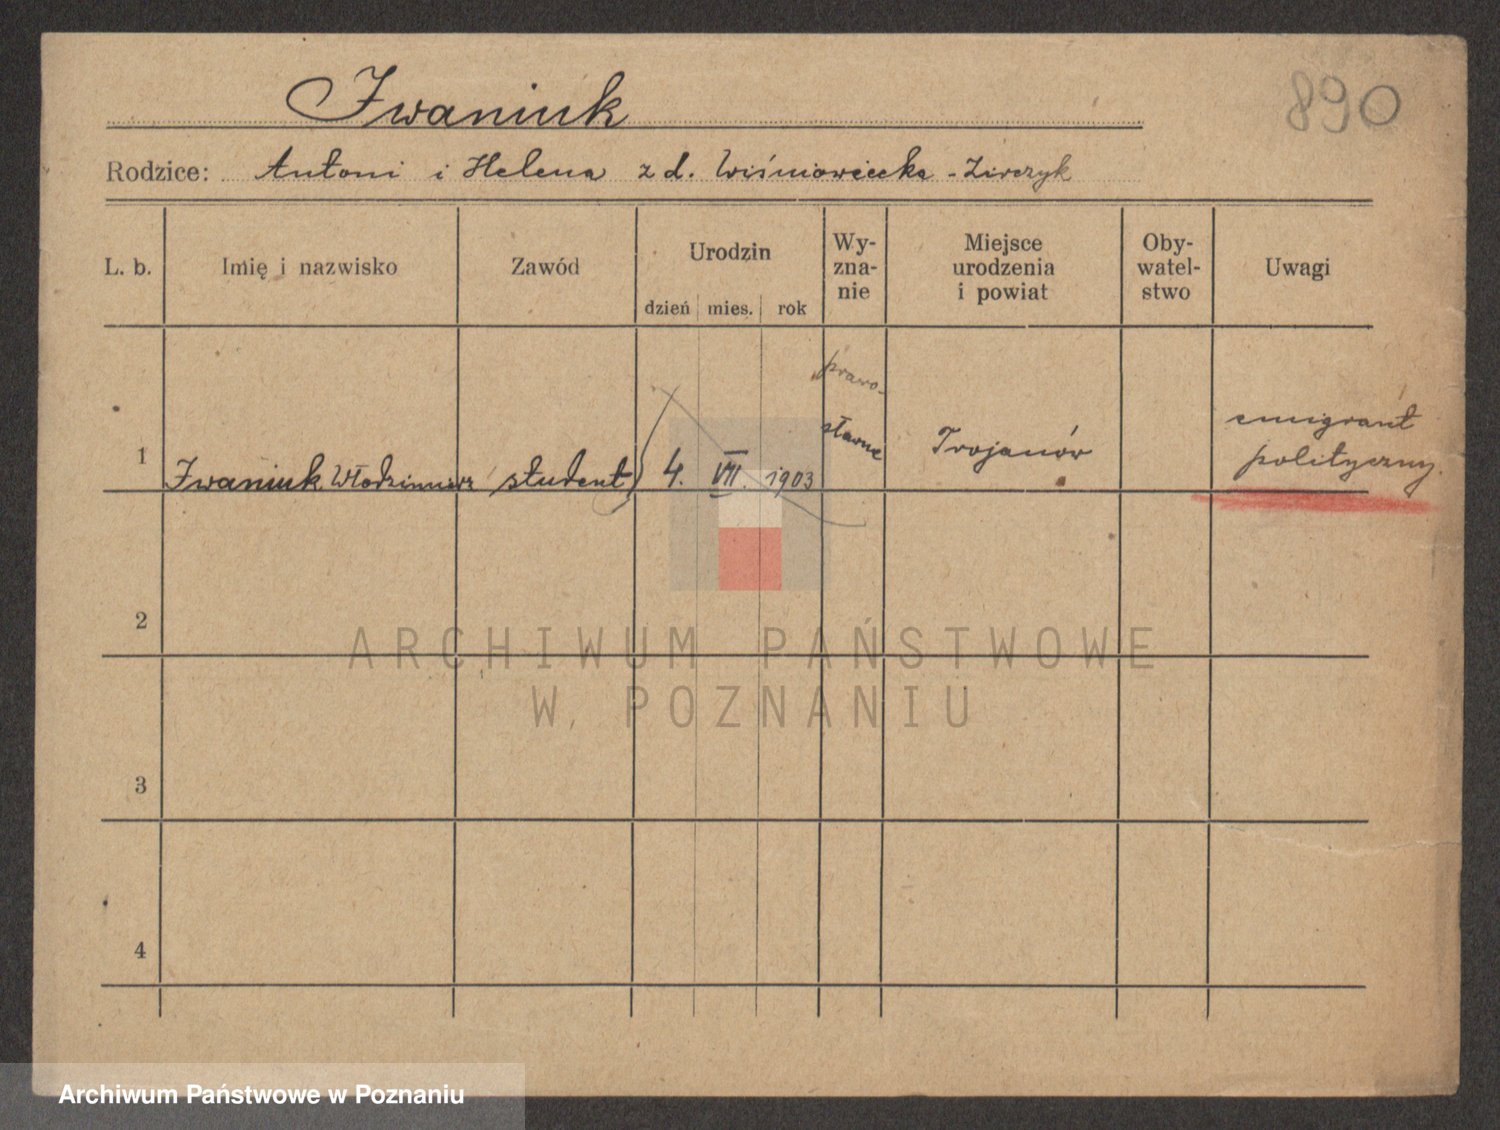 Iwaniuk
890
Rodzice: Antoni i Helena z d. Wiśniowiecka -
L. b.
Imię i nazwisko
Zawód
Urodzin
dzień mies. rok
Wy-
zna-
nie
Miejsce
urodzenia
i powiat
Oby-
watel-
stwo
Uwagi
1
Iwaniuk Włodzimierz
student
4. VII. 1903
prawo-
sławne
Trojanów
emigrant
polityczny.
2
3
4
ARCHIWUM PAŃSTWOWE
W POZNANIU
Archiwum Państwowe w Poznaniu